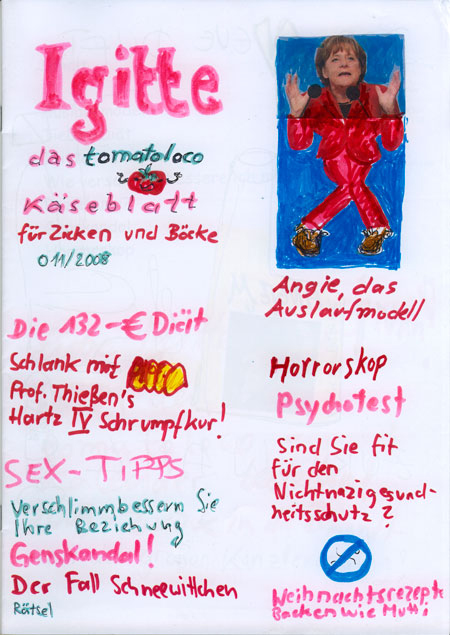 Igitte
das tomatoloco
Käseblatt
für Zicken und Böcke
011/2008
Angie, das
Auslaufmodell
Die 132-€ Diät
Schlank mit
Prof. Thießen's
Hartz IV Schrumpfkur!
SEX-TIPPS
Verschlimmbessern Sie
Ihre Beziehung
Genskandal!
Der Fall Schneewittchen
Rätsel
Horrorskop
Psychotest
Sind Sie fit
für den
Nichtnazigesund-
heitsschutz?
Weihnachtsrezepte
Backen wie Mutti